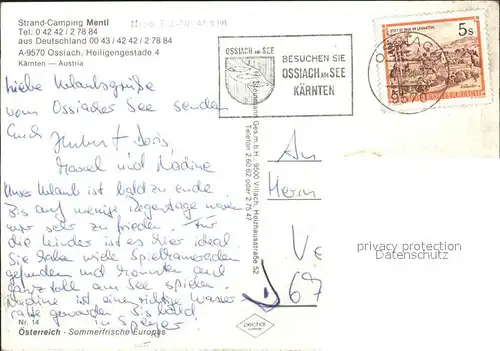 Strand-Camping Mentl
Tel. 0 42 42 / 2 78 84
aus Deutschland 00 43 / 42 42 / 2 78 84
A-9570 Ossiach, Heiligengestade 4
Kärnten — Austria
OSSIACH AM SEE
BESUCHEN SIE
OSSIACH AM SEE
KÄRNTEN
OSSIACH
9570
STIFT ST. PAUL IM LAVANTTAL
5s
REPUBLIK ÖSTERREICH
Liebe Urlaubsgrüße
vom Ossiacher See senden
Euch Hubert Doris,
Marcel und Nadine
Unser Urlaub ist bald zu Ende.
Bis auf wenige Regentage waren
wir sehr zu frieden. Für
die Kinder ist es hier ideal.
Sie haben viele Spielkameraden
gefunden und konnten auch
ganz toll am See spielen.
Nadine ist eine richtige Wasser
ratte geworden. Bis bald
in Speyer
An
Herrn
Ve
67
Steurmann Ges.m.b.H., 9500 Villach, Heizhausstraße 52
Telefon 2 60 62 oder 2 75 47
privacy protection
ansichtskarten-lexikon
Nr. 14
Österreich - Sommerfrische Europas